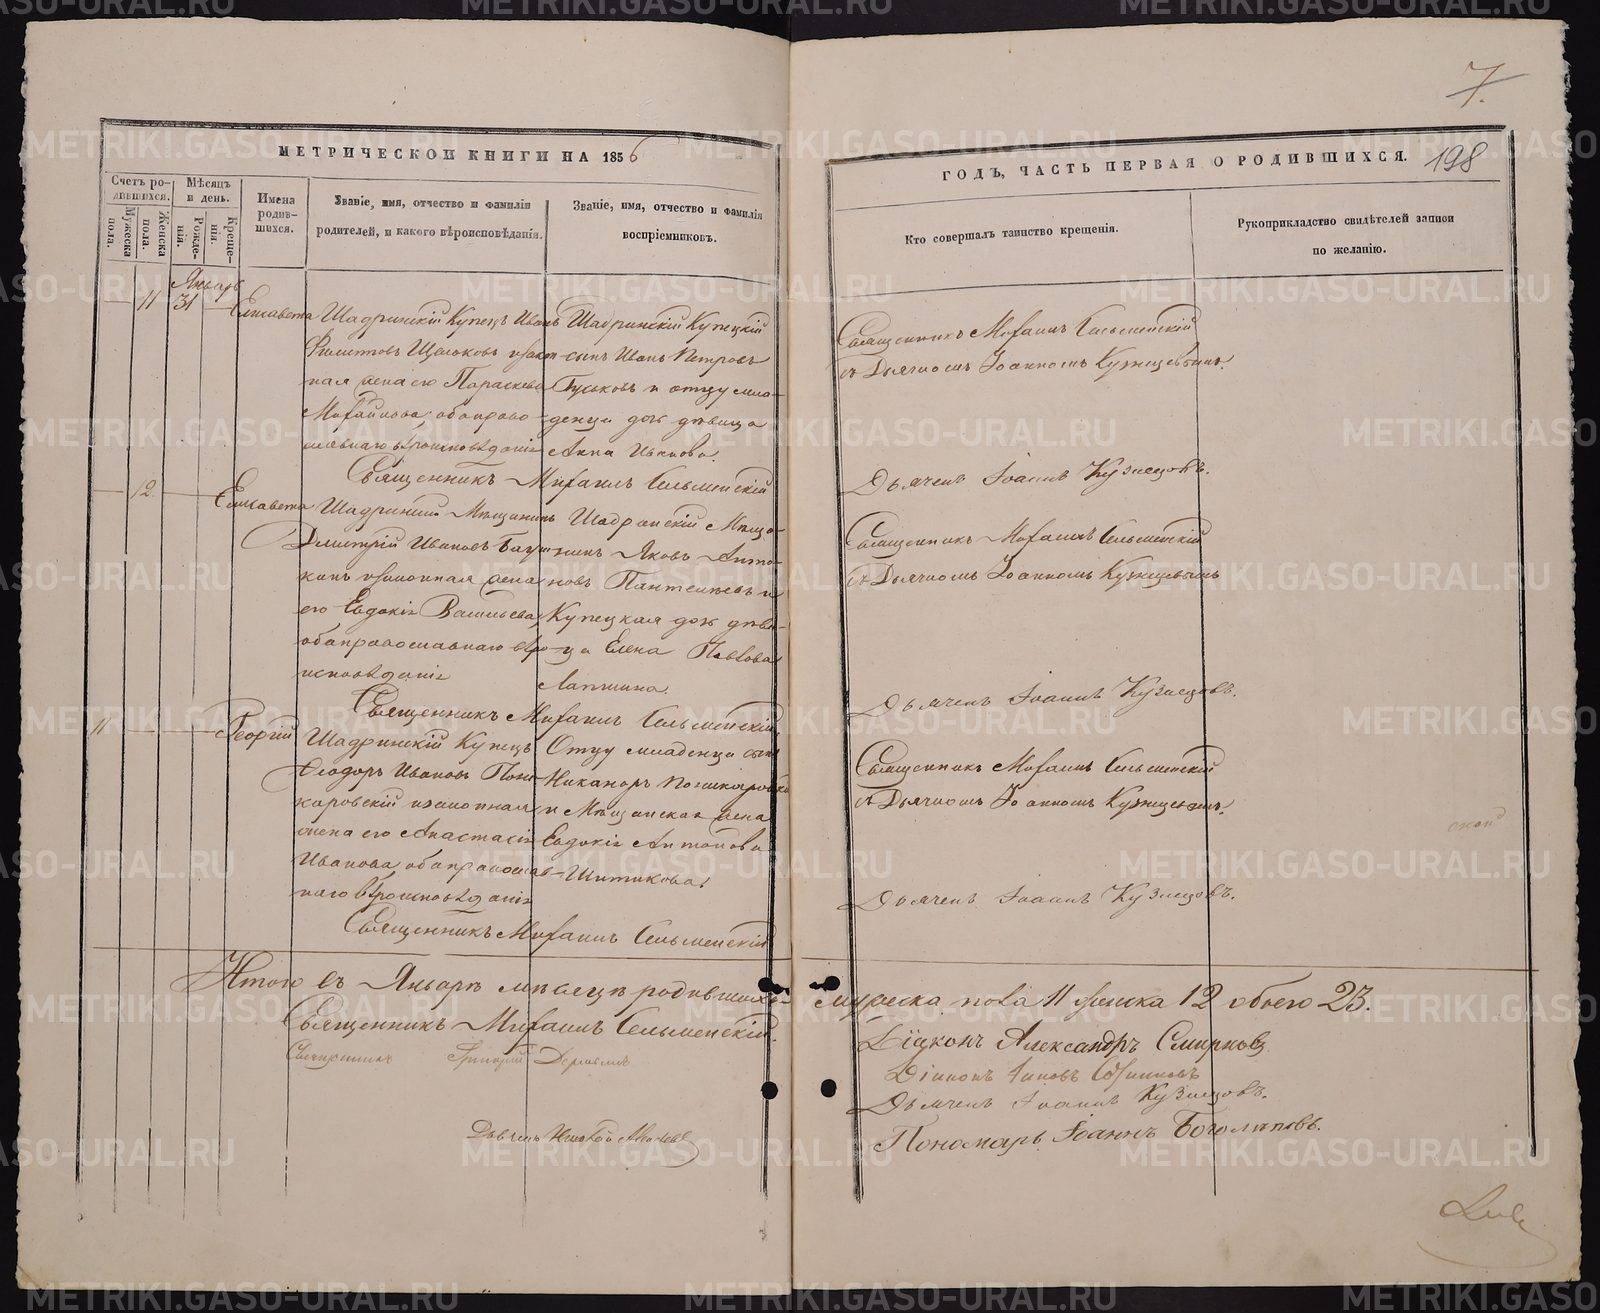 7.
198
МЕТРИЧЕСКОЙ КНИГИ НА 1856
ГОДЪ, ЧАСТЬ ПЕРВАЯ О РОДИВШИХСЯ.
Счетъ родившихся.
Мужеска пола.
Женска пола.
Мѣсяцъ и день.
Рожденія.
Крещенія.
Имена родившихся.
Званіе, имя, отчество и фамилія родителей, и какого вѣроисповѣданія.
Званіе, имя, отчество и фамилія воспріемниковъ.
Кто совершалъ таинство крещенія.
Рукоприкладство свидѣтелей записи по желанію.
Январь
11 31
Елисавета
Шадринскій Купецъ Иванъ
Филиповъ Щолоковъ и закон-
ная жена его Параскева
Михайлова, оба право-
славнаго вѣроисповѣданія
Шадринскій Купецкій
сынъ Иванъ Петровъ
Гуськовъ и отцу мла-
денца дочь дѣвица
Анна Иванова.
Священникъ Михаилъ Сельменскій
Священникъ Михаилъ Сельменскій
съ Дьячкомъ Іоанномъ Кузнецовымъ.
Дьячекъ Іоаннъ Кузнецовъ.
12
Елисавета
Шадринскій Мѣщанинъ
Димитрій Ивановъ
и законная жена
его Евдокія Васильева,
оба православнаго вѣро-
исповѣданія
Шадринскій Мѣща-
нинъ Яковъ Анто-
новъ Пантелѣевъ и
Купецкая дочь дѣви-
ца Елена Павлова
Лапшина.
Священникъ Михаилъ Сельменскій
Священникъ Михаилъ Сельменскій
съ Дьячкомъ Іоанномъ Кузнецовымъ
Дьячекъ Іоаннъ Кузнецовъ.
11
Георгій
Шадринскій Купецъ
Ѳеодоръ Ивановъ Пони-
каровскій и законная
жена его Анастасія
Иванова, оба православ-
наго вѣроисповѣданія
Отцу младенца сынъ
Никаноръ Поникаровскій
и Мѣщанская жена
Евдокія Антонова
Шитикова.
Священникъ Михаилъ Сельменскій
Священникъ Михаилъ Сельменскій
съ Дьячкомъ Іоанномъ Кузнецовымъ.
Дьячекъ Іоаннъ Кузнецовъ.
Итого въ Январѣ мѣсяцѣ родившихся мужеска пола 11 женска 12 обоего 23.
Священникъ Михаилъ Сельменскій.
Священникъ Григорій
Діаконъ Александръ Смирновъ
Діаконъ
Дьячекъ Іоаннъ Кузнецовъ.
Пономарь Іоаннъ Боголѣповъ.
METRIKI.GASO-URAL.RU